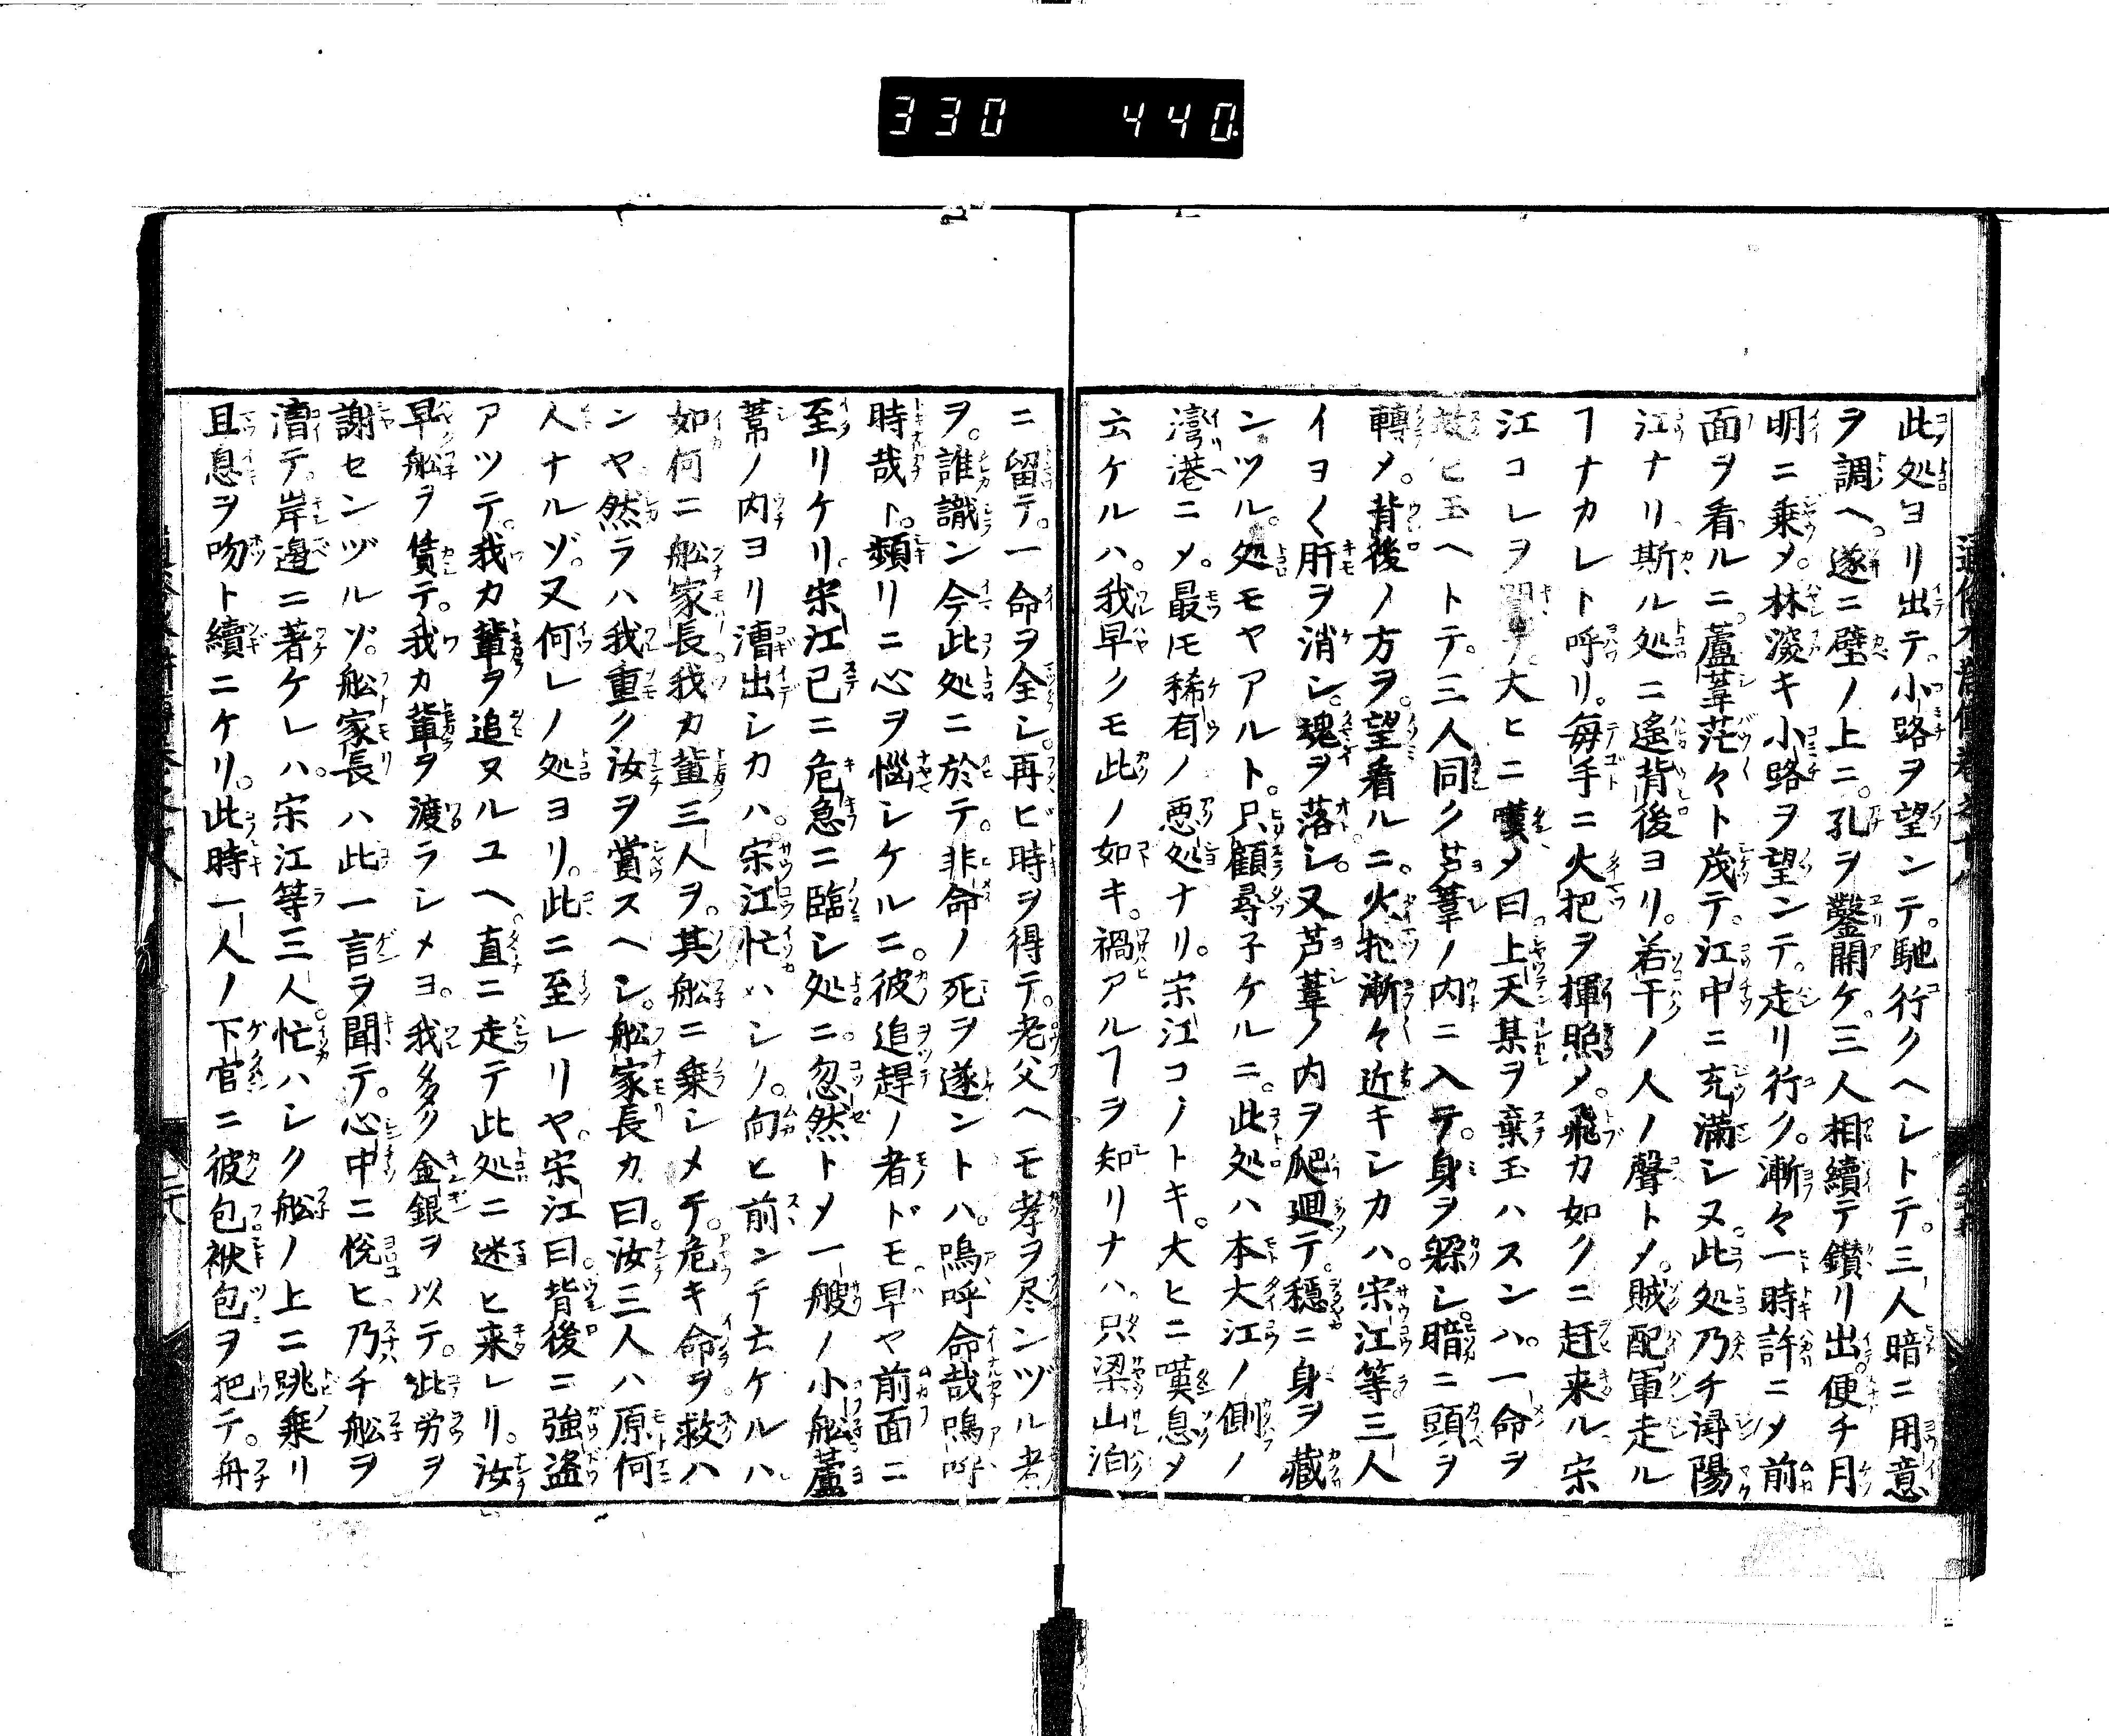 330 440.
此処ヨリ出テ。小路ヲ望ンテ。馳行クヘシトテ。三人暗ニ用意
ヲ調ヘ。遂ニ壁ノ上ニ。孔ヲ鑿開ケ。三人相續テ鑚リ出。便チ月
明ニ乗メ。林深キ小路ヲ望ンテ。走リ行ク。漸々一時許ニメ前
面ヲ看ルニ。蘆葦茫々ト茂テ。江中ニ充滿シヌ。此処乃チ潯陽
江ナリ。斯ル処ニ遙背後ヨリ。若干ノ人ノ聲トメ。賊配軍走ル
ヿナカレト呼リ。毎手ニ火把ヲ揮照メ。飛カ如クニ赶来ル。宋
江コレヲ テ。大ヒニ嘆メ曰。上天某ヲ棄玉ハスンハ。一命ヲ
救ヒ玉ヘトテ。三人同ク芦葦ノ内ニ入テ。身ヲ躱シ。暗ニ頭ヲ
轉メ。背後ノ方ヲ。望看ルニ。火把漸々近キシカハ。宋江等三人
イヨ〱肝ヲ消シ。魂ヲ落シ。又芦葦ノ内ヲ爬廻テ。穏ニ身ヲ藏
ンツル。処モヤアルト。只顧尋子ケルニ。此処ハ本大江ノ側ノ
湾港ニメ。最モ稀有ノ悪処ナリ。宋江コノトキ。大ヒニ嘆息メ
云ケルハ。我早クモ此ノ如キ。禍アルヿヲ知リナハ。只梁山泊
ニ留テ。一命ヲ全シ。再ヒ時ヲ得テ。老父ヘモ孝ヲ尽ンヅル者
ヲ。誰識ン今此処ニ於テ。非命ノ死ヲ遂ントハ。嗚呼命哉嗚呼
時哉ト。頻リニ心ヲ惱シケルニ。彼追趕ノ者ドモ早ヤ前面ニ
至リケリ。宋江已ニ危急ニ臨シ処ニ。忽然トメ一艘ノ小舩蘆
葦ノ内ヨリ漕出シカハ。宋江忙ハシク。向ヒ前ンテ云ケルハ
如何ニ舩家長我カ輩三人ヲ。其舩ニ乗シメテ。危キ命ヲ救ハ
ンヤ。然ラハ我重ク汝ヲ賞スヘシ。舩家長カ曰。汝三人ハ原何
人ナルゾ。又何レノ処ヨリ。此ニ至レリヤ。宋江曰。背後ニ強盗
アツテ。我カ輩ヲ追ヌルユヘ。直ニ走テ此処ニ迷ヒ来レリ。汝
早舩ヲ賃テ。我カ輩ヲ渡ラシメヨ。我多ク金銀ヲ以テ。此労ヲ
謝センヅルゾ。舩家長ハ此一言ヲ聞テ。心中ニ悦ヒ乃チ舩ヲ
漕テ。岸邉ニ著ケレハ。宋江等三人。忙ハシク舩ノ上ニ跳乗リ
且息ヲ吻ト續ニケリ。此時一人ノ下官ニ彼包袱包ヲ把テ。舟